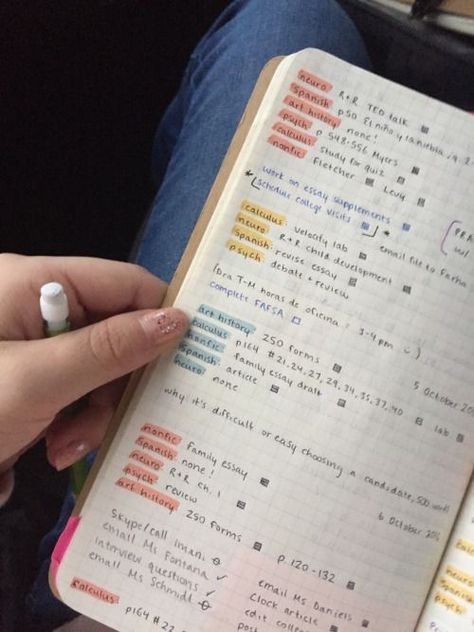 neuro: R+R TED talk
spanish: p50 El niño y la niebla, q. 2
art history: none!
psych: p 548-556 Myers
calculus: study for quiz
nonfic: Fletcher Levy
* work on essay supplements
schedule college visits *
calculus: velocity lab email file to Farha
neuro: R+R child development
spanish: revise essay
psych: debate + review
(Dra T-M horas de oficina : 3-4 pm :)
complete FAFSA
5 October 20
art history: 250 forms
calculus: p164 #21, 24, 27, 29, 34, 35, 37, 40 lab
nonfic: family essay draft
spanish: article
neuro: none
why it's difficult or easy choosing a candidate, 500 words
6 October 20
nonfic: family essay
spanish: none!
neuro: R+R ch. 1
psych: review
art history: 250 forms p. 120-132
Skype/call Iman
email Ms Fontana
interview questions
email Ms Schmidt
email Ms Daniels
Clock article
edit
post
calculus: p164 #22
PRA
w/
neuro
spanish
psych